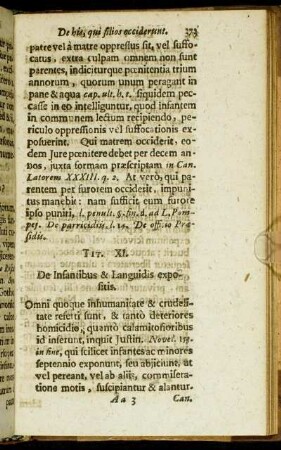 De his, qui filios occiderunt. 373
patre vel à matre oppressus sit, vel suffo-
catus, extra culpam omnem non sunt
parentes, indiciturque pœnitentia trium
annorum, quorum unum peragant in
pane & aqua cap. ult. h. t. siquidem pec-
casse in eo intelliguntur, quod infantem
in communem lectum recipiendo, pe-
riculo oppressionis vel suffocationis ex-
posuerint. Qui matrem occiderit, eo-
dem Jure pœnitere debet per decem an-
nos, juxta formam præscriptam in Can.
Latorem XXXIII. q. 2. At verò, qui pa-
rentem per furorem occiderit, impuni-
tus manebit: nam sufficit eum furore
ipso puniri, l. penult. §. fin. d. ad L. Pom-
pej. De parricidiis. l. 14. De officio Præ-
sidis.
TIT. XI.
De Infantibus & Languidis expo-
sitis.
Omni quoque inhumanitate & crudeli-
tate referti sunt, & tantò deteriores
homicidio, quanto calamitosioribus
id inferunt, inquit Justin. Novel. 153.
in fine, qui scilicet infantes ac minores
septennio exponunt, seu abjiciunt, at
vel pereant, vel ab aliis, commisera-
tione motis, suscipiantur & alantur.
Aa 3 Can.